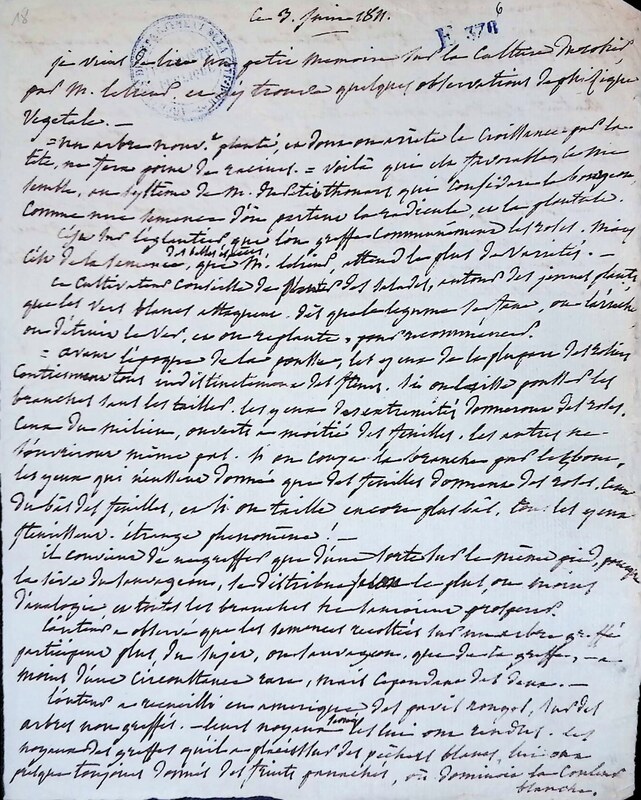 18
6
ce 3. juin 1811.
F 378
je viens de lire un petit memoire sur la Culture du rosier,
par M. lelieur, et j'y trouve quelques observations de phisique
vegetale. —
= un arbre nouv.t planté, et dont on arrête la Croissance par la
tête, ne fera point de racines. = voilà qui est favorable, ce me
semble, au système de M. du petit thouars, qui Considère le bourgeon
Comme une semence d'où partent la radicule, et la plantule.
C'est sur l'églantier, que l'on greffe Communement les roses. mais
c'est de la semence des belles espèces, que M. lelieur attend le plus de varietés. —
ce Cultivateur Conseille de planter des salades, autour des jeunes plants
que les vers blancs attaquent. dès que le legume se fane, on l'arrache
on détruit le ver, et on replante, pour recommencer.
= avant l'époque de la pousse, les yeux de la plupart des rosiers
Contiennent tous indistinctement des fleurs. si on laisse pousser les
branches sans les tailler, les yeux des extremités donneront des roses.
Ceux du milieu, ouverts a moitié des feuilles. les autres ne
s'ouvriront même pas. si on coupe la branche par le bout,
les yeux qui n'eussent donné que des feuilles donnent des roses, Ceux
du bas des feuilles, et si on taille encore plus bas, tous les yeux
fleurissent. étrange phenomène! —
il convient de ne greffer que d'une sorte sur le même pied, parceque
la sève du sauvageon, se distribue selon le plus, ou moins
d'analogie et toutes les branches ne sauroient prosperer.
l'auteur a observé que les semences recoltées sur un arbre greffé
participent plus, du sujet, ou sauvageon, que de la greffe, — a
moins d'une circonstance rare, mais Cependant des deux. —
l'auteur a recueilli en amerique des pavis rouges, sur des
arbres non greffés. — leurs noyaux semés les lui ont rendus. les
noyaux des greffes qu'il a placées sur des pêchers blancs, lui ont
presque toujours donnés des fruits panachés, où dominoit la Couleur
blanche.